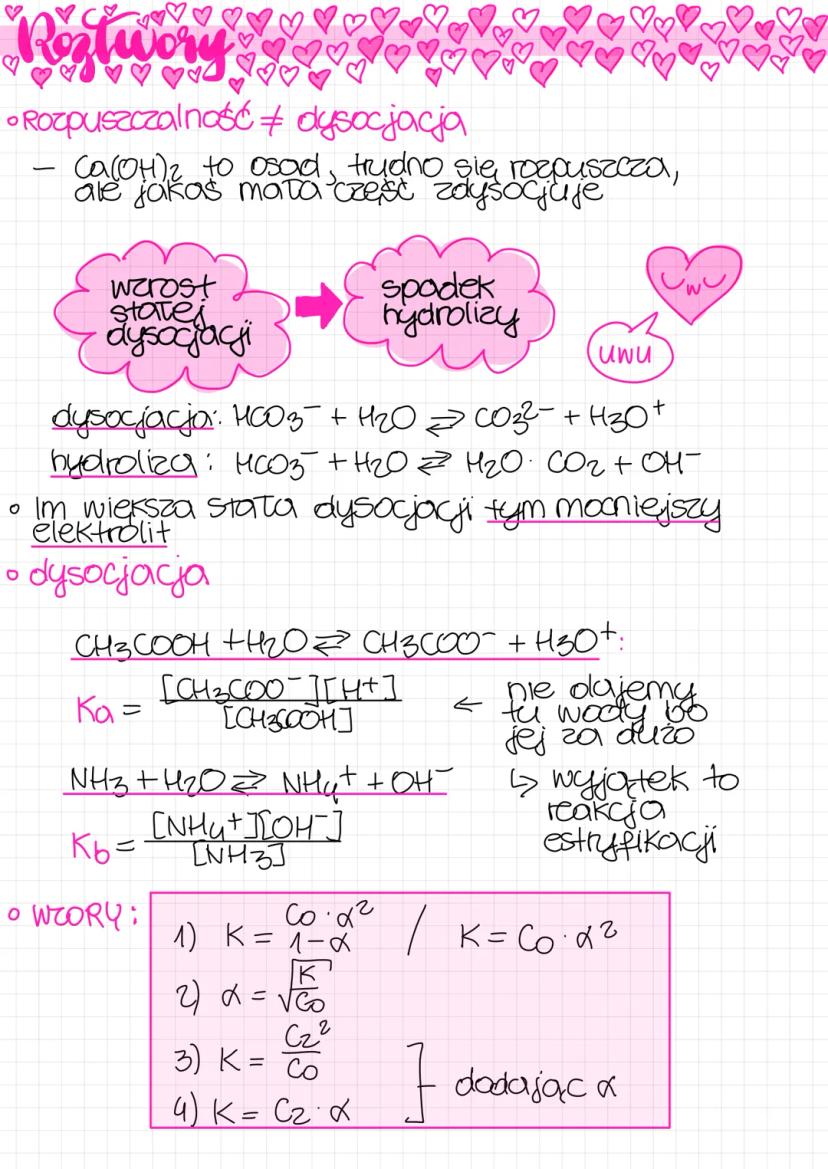 Roztwory
• Rozpuszczalność ≠ dysocjacja
— Ca(OH)2 to osad, trudno się rozpuszcza,
ale jakaś mała część zdysocjuje
wzrost
stałej
dysocjacji
spadek
hydrolizy
UwU
uwu
dysocjacja: HCO3⁻ + H2O ⇄ CO3²⁻ + H3O⁺
hydroliza: HCO3⁻ + H2O ⇄ H2O · CO2 + OH⁻
• Im większa stała dysocjacji tym mocniejszy
elektrolit
• dysocjacja
CH3COOH + H2O ⇄ CH3COO⁻ + H3O⁺:
Ka = [CH3COO⁻][H+] / [CH3COOH] ← nie dajemy
tu wody bo
jej za dużo
NH3 + H2O ⇄ NH4⁺ + OH⁻
↳ wyjątek to
reakcja
estryfikacji
Kb = [NH4⁺][OH⁻] / [NH3]
• wzory:
1) K = Co · α² / 1-α / K = Co · α²
2) α = √K/Co
3) K = Cz² / Co
4) K = Cz · α
] dodając α